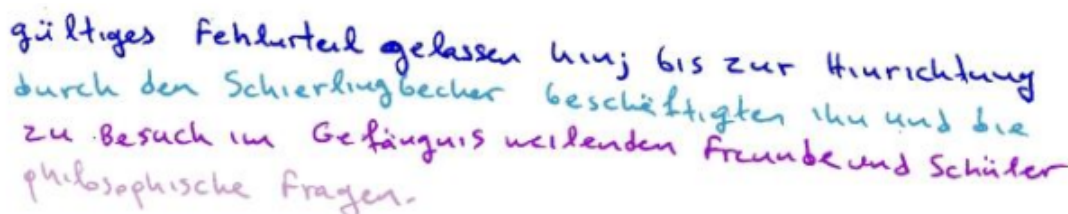 gültiges Fehlurteil gelassen hin; bis zur Hinrichtung
durch den Schierlingbecher beschäftigten ihn und die
zu Besuch im Gefängnis weilenden Freunde und Schüler
philosophische Fragen.